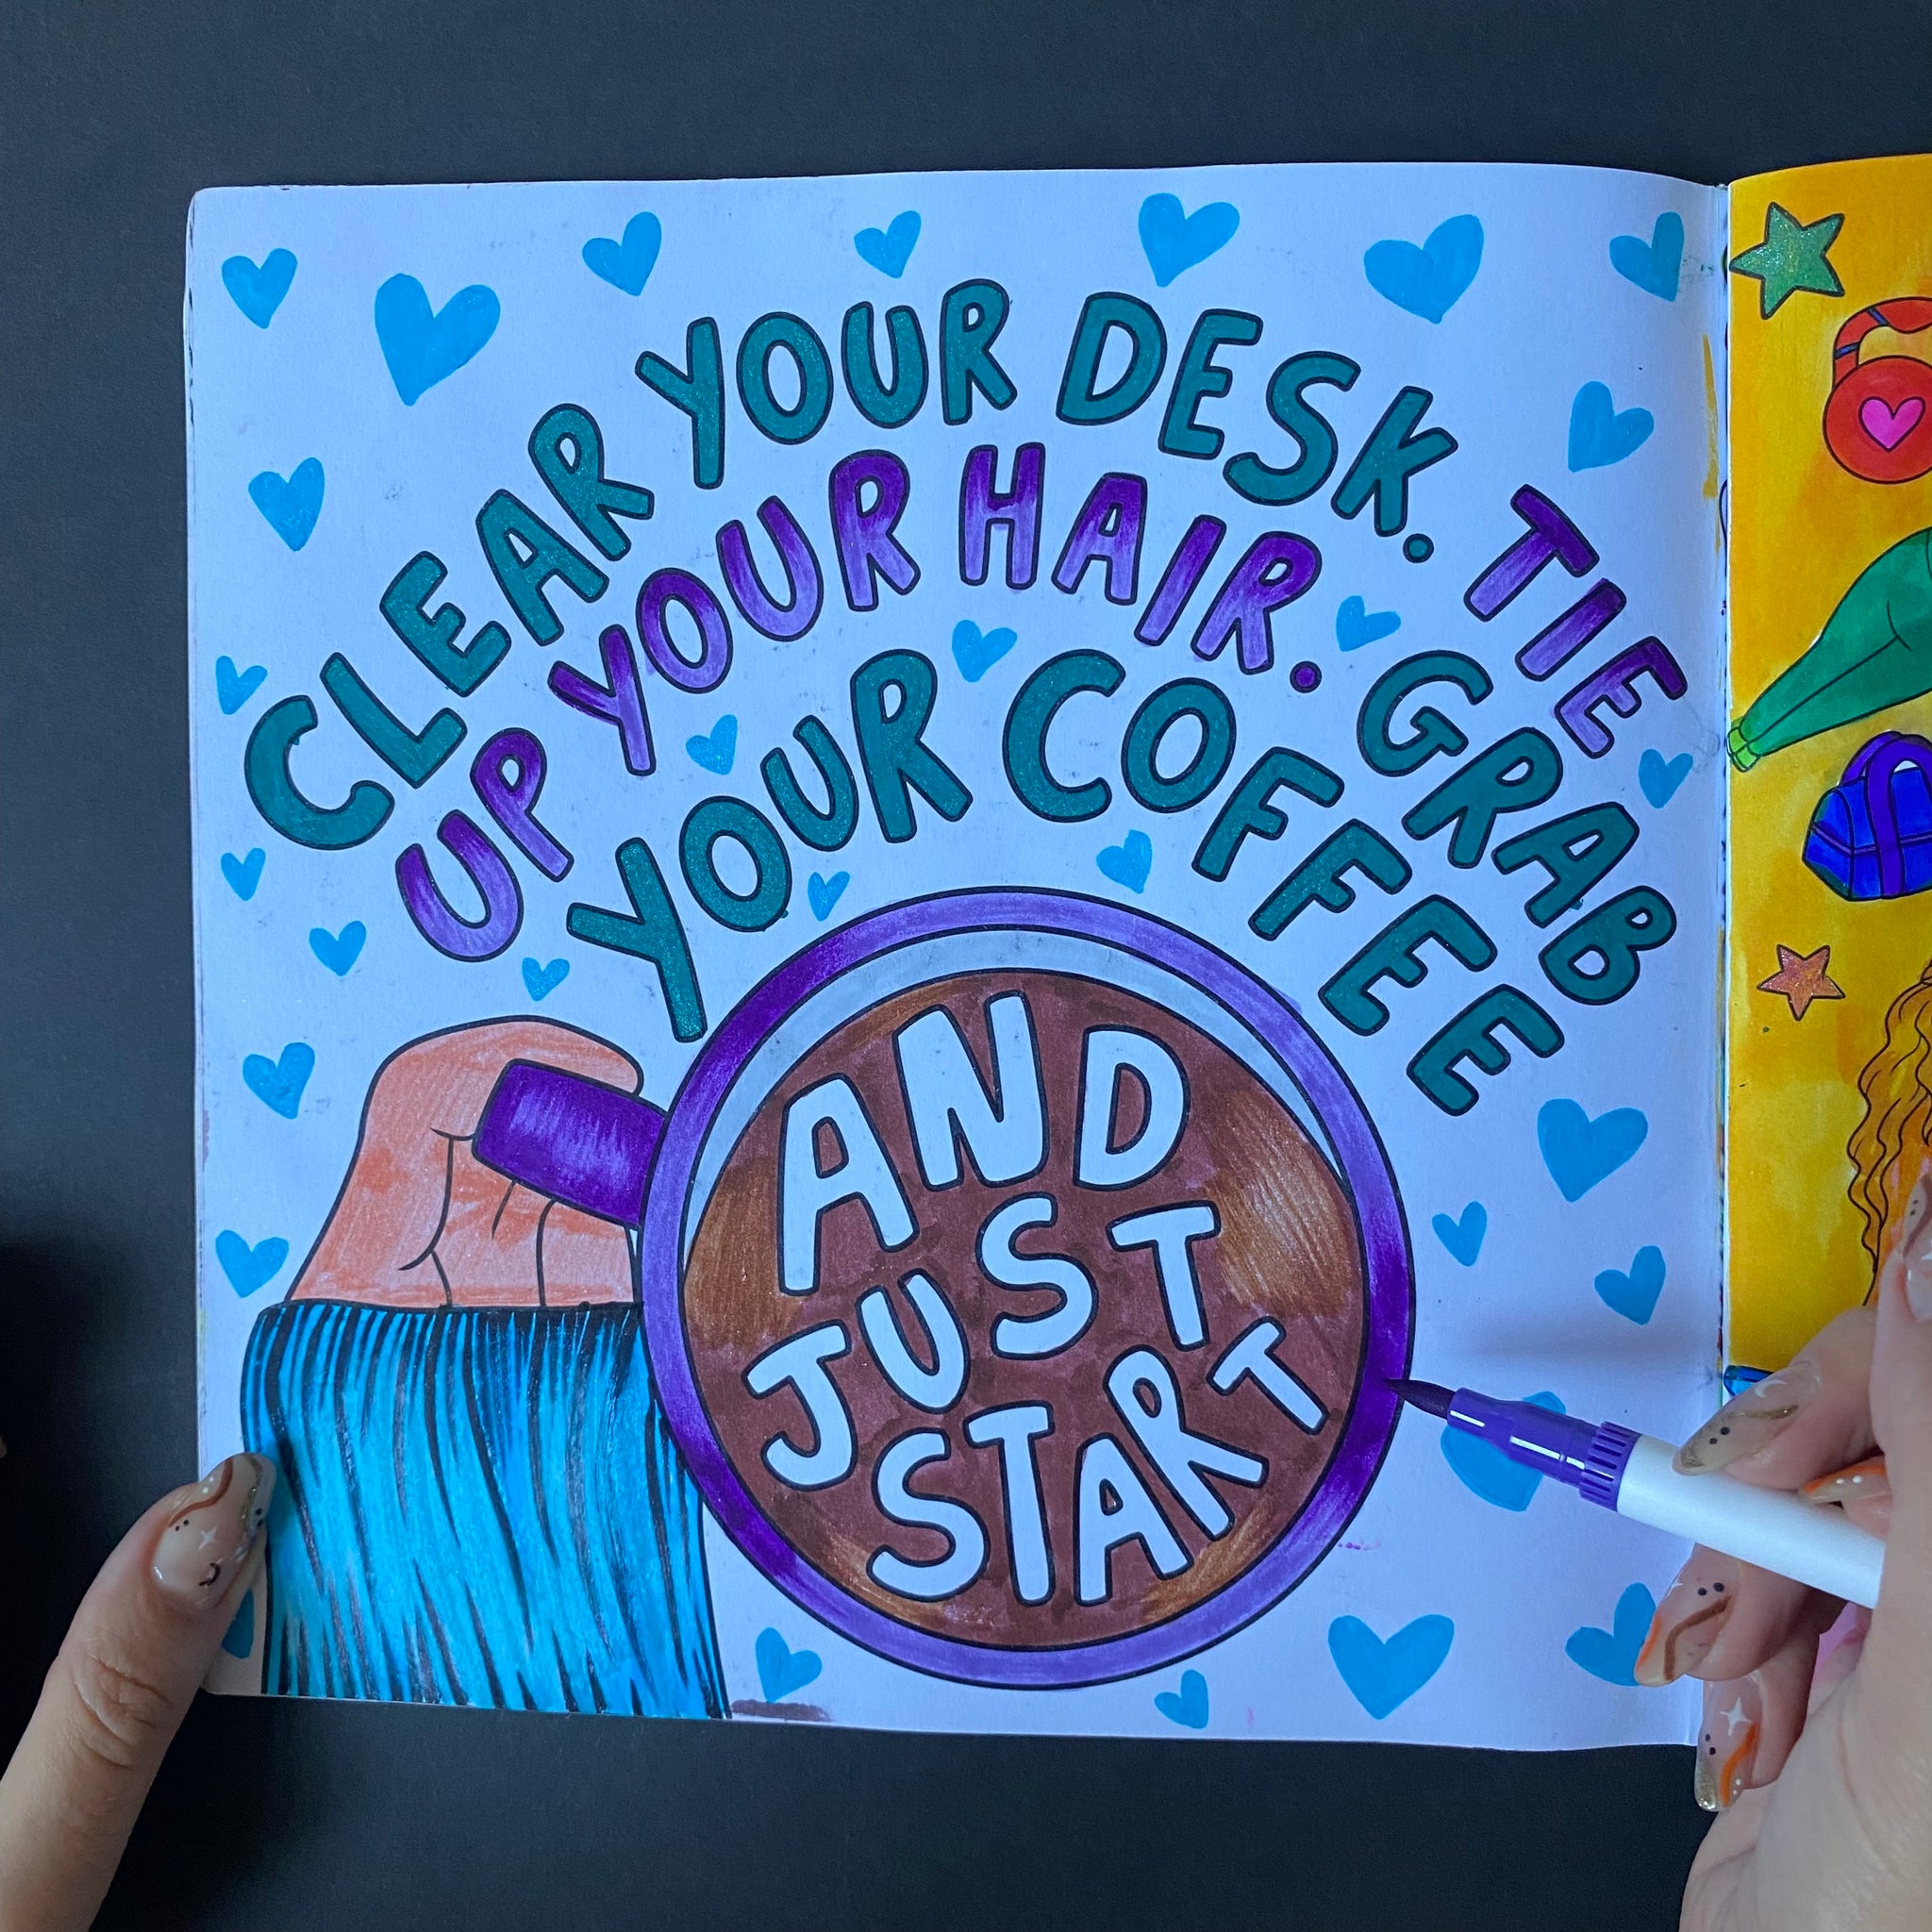 CLEAR YOUR DESK. TIE
UP YOUR HAIR. GRAB
YOUR COFFEE
AND
JUST
START